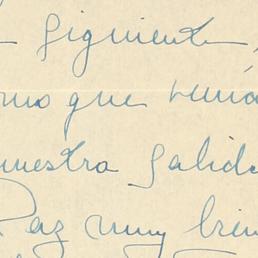 siguiente,
mo que venía
nuestra salida
Paz muy bien